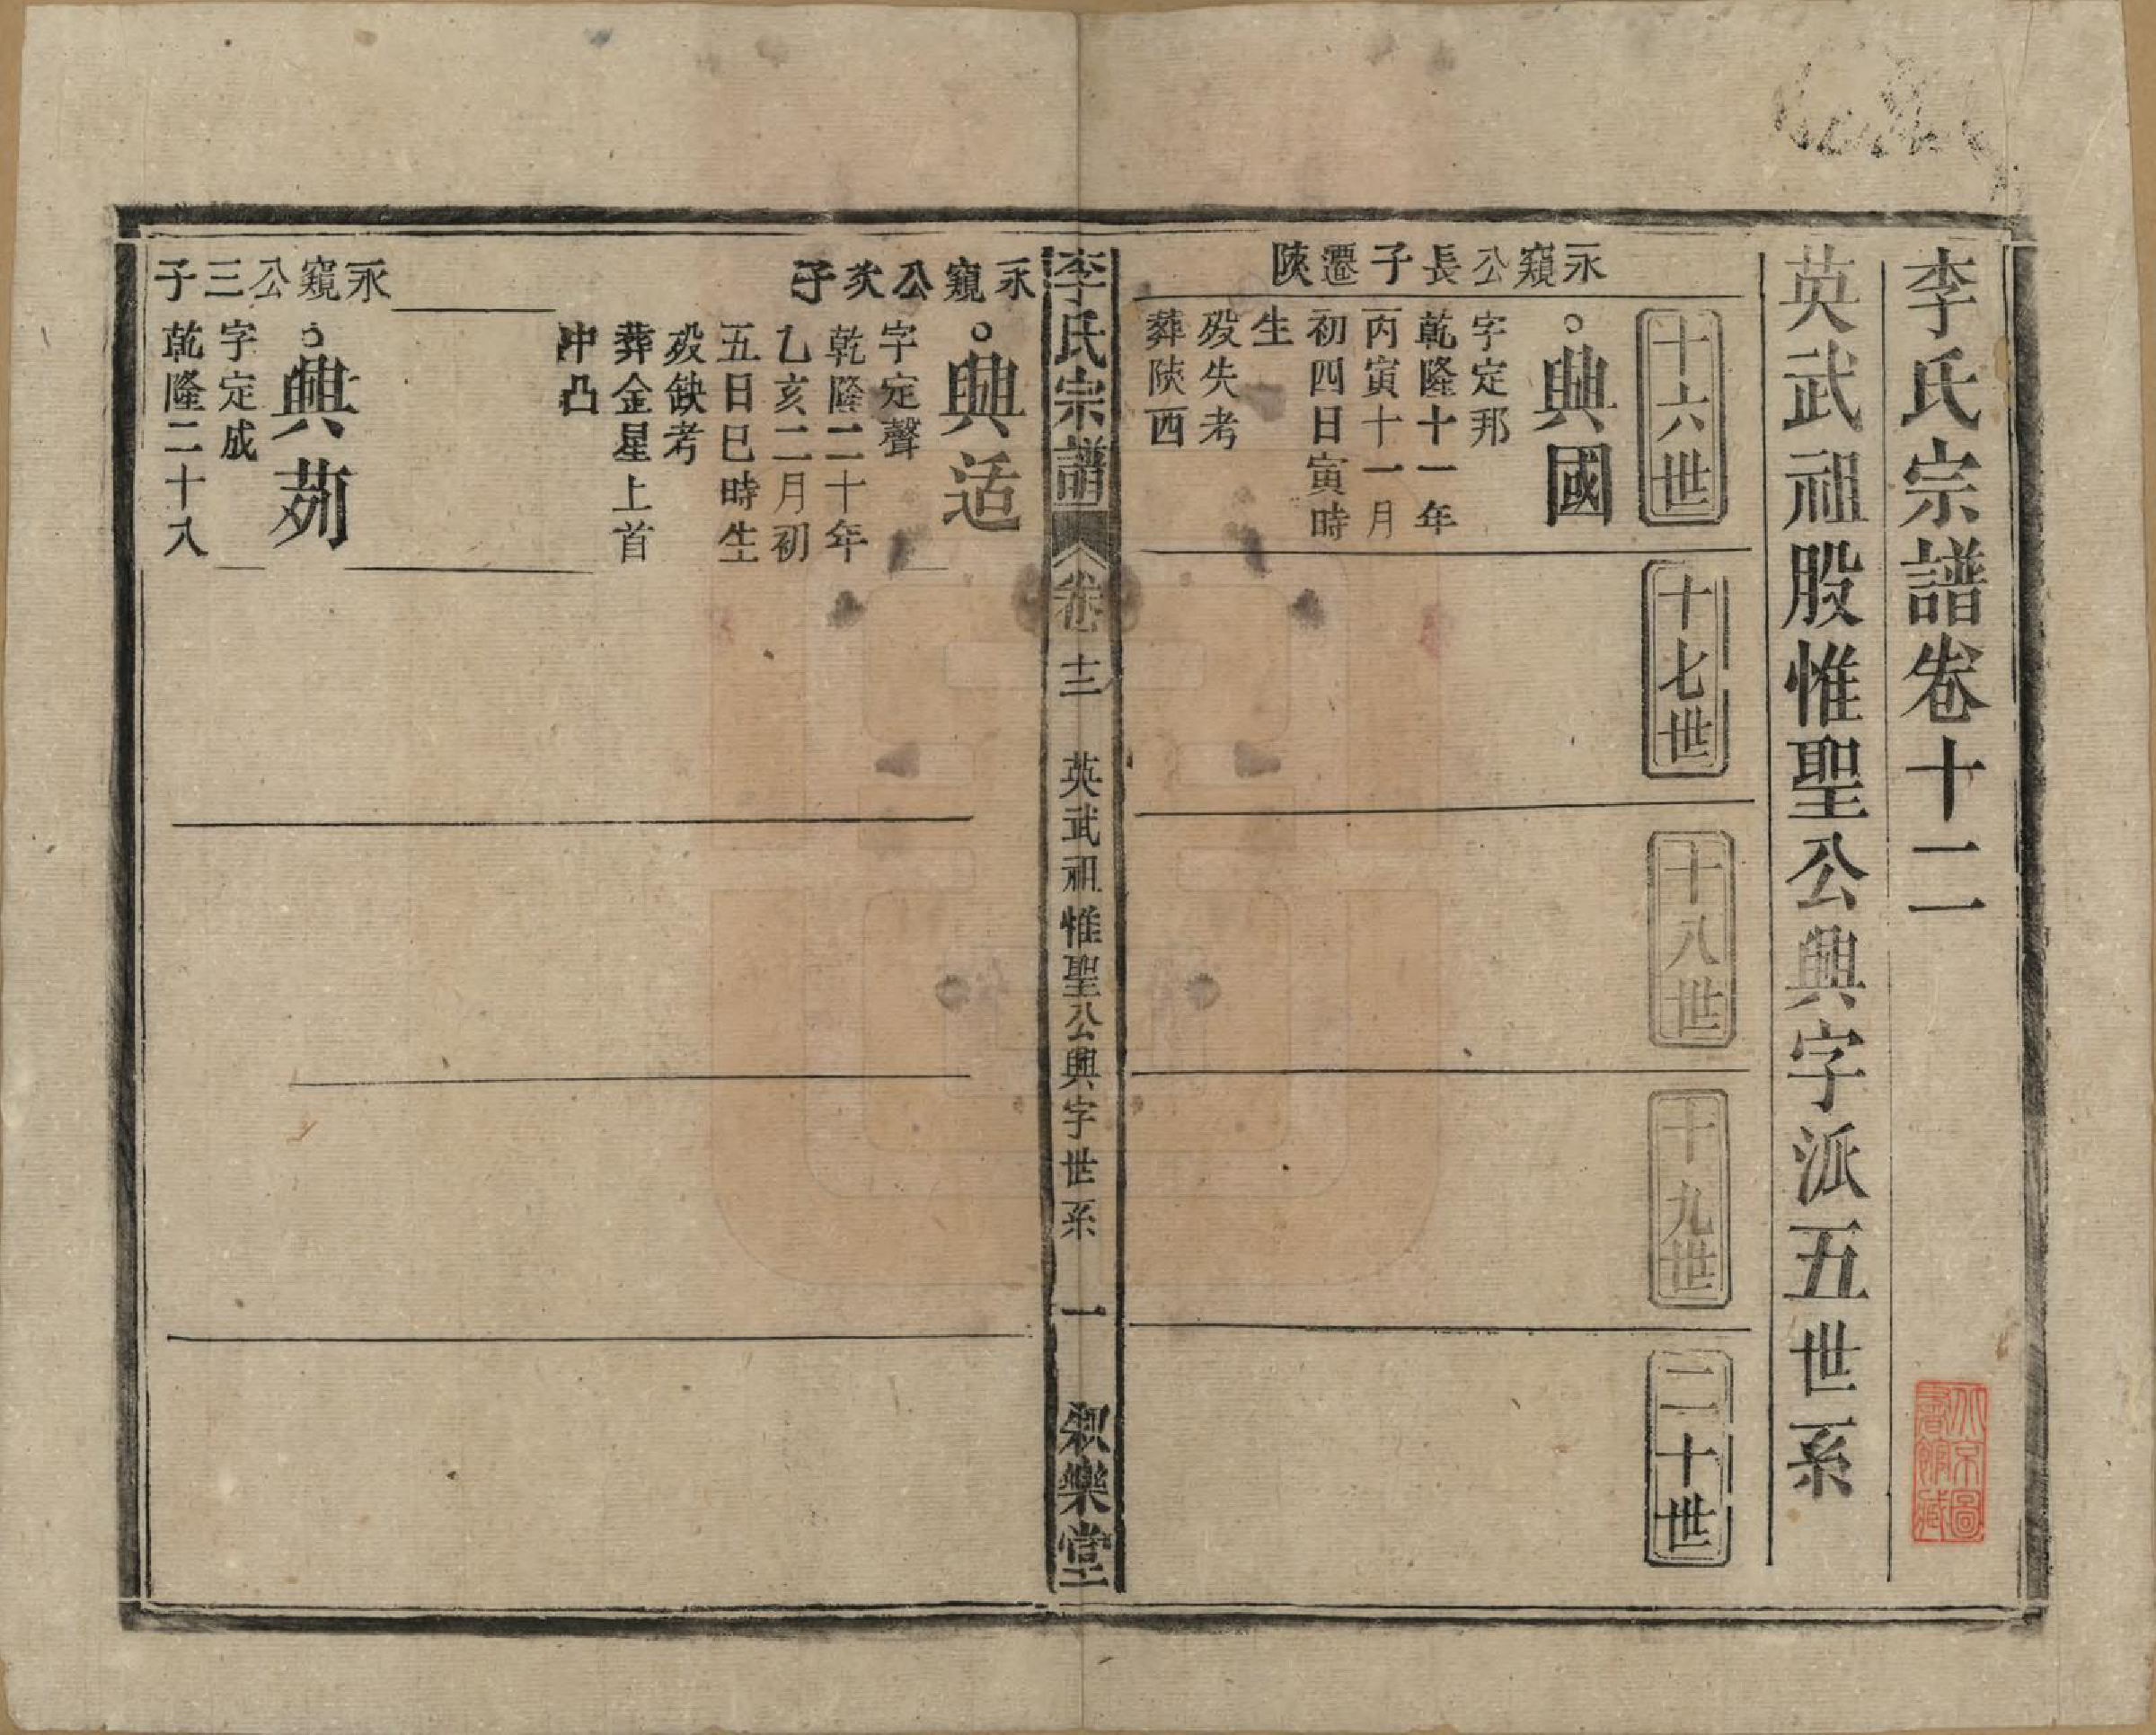 李氏宗譜卷十二
北京圖
書館藏
英武祖股惟聖公興字派五世系
十六世
十七世
十八世
十九世
二十世
永窺公長子遷陝
興國
字定邦
乾隆十一年
丙寅十一月
初四日寅時
生
殁失考
葬陝西
李氏宗譜
卷十二
英武祖惟聖公興字世系
一
和樂堂
永窺公次子
興适
字定聲
乾隆二十年
乙亥二月初
五日巳時生
殁缺考
葬金星上首
中凸
永窺公三子
興茢
字定成
乾隆二十八